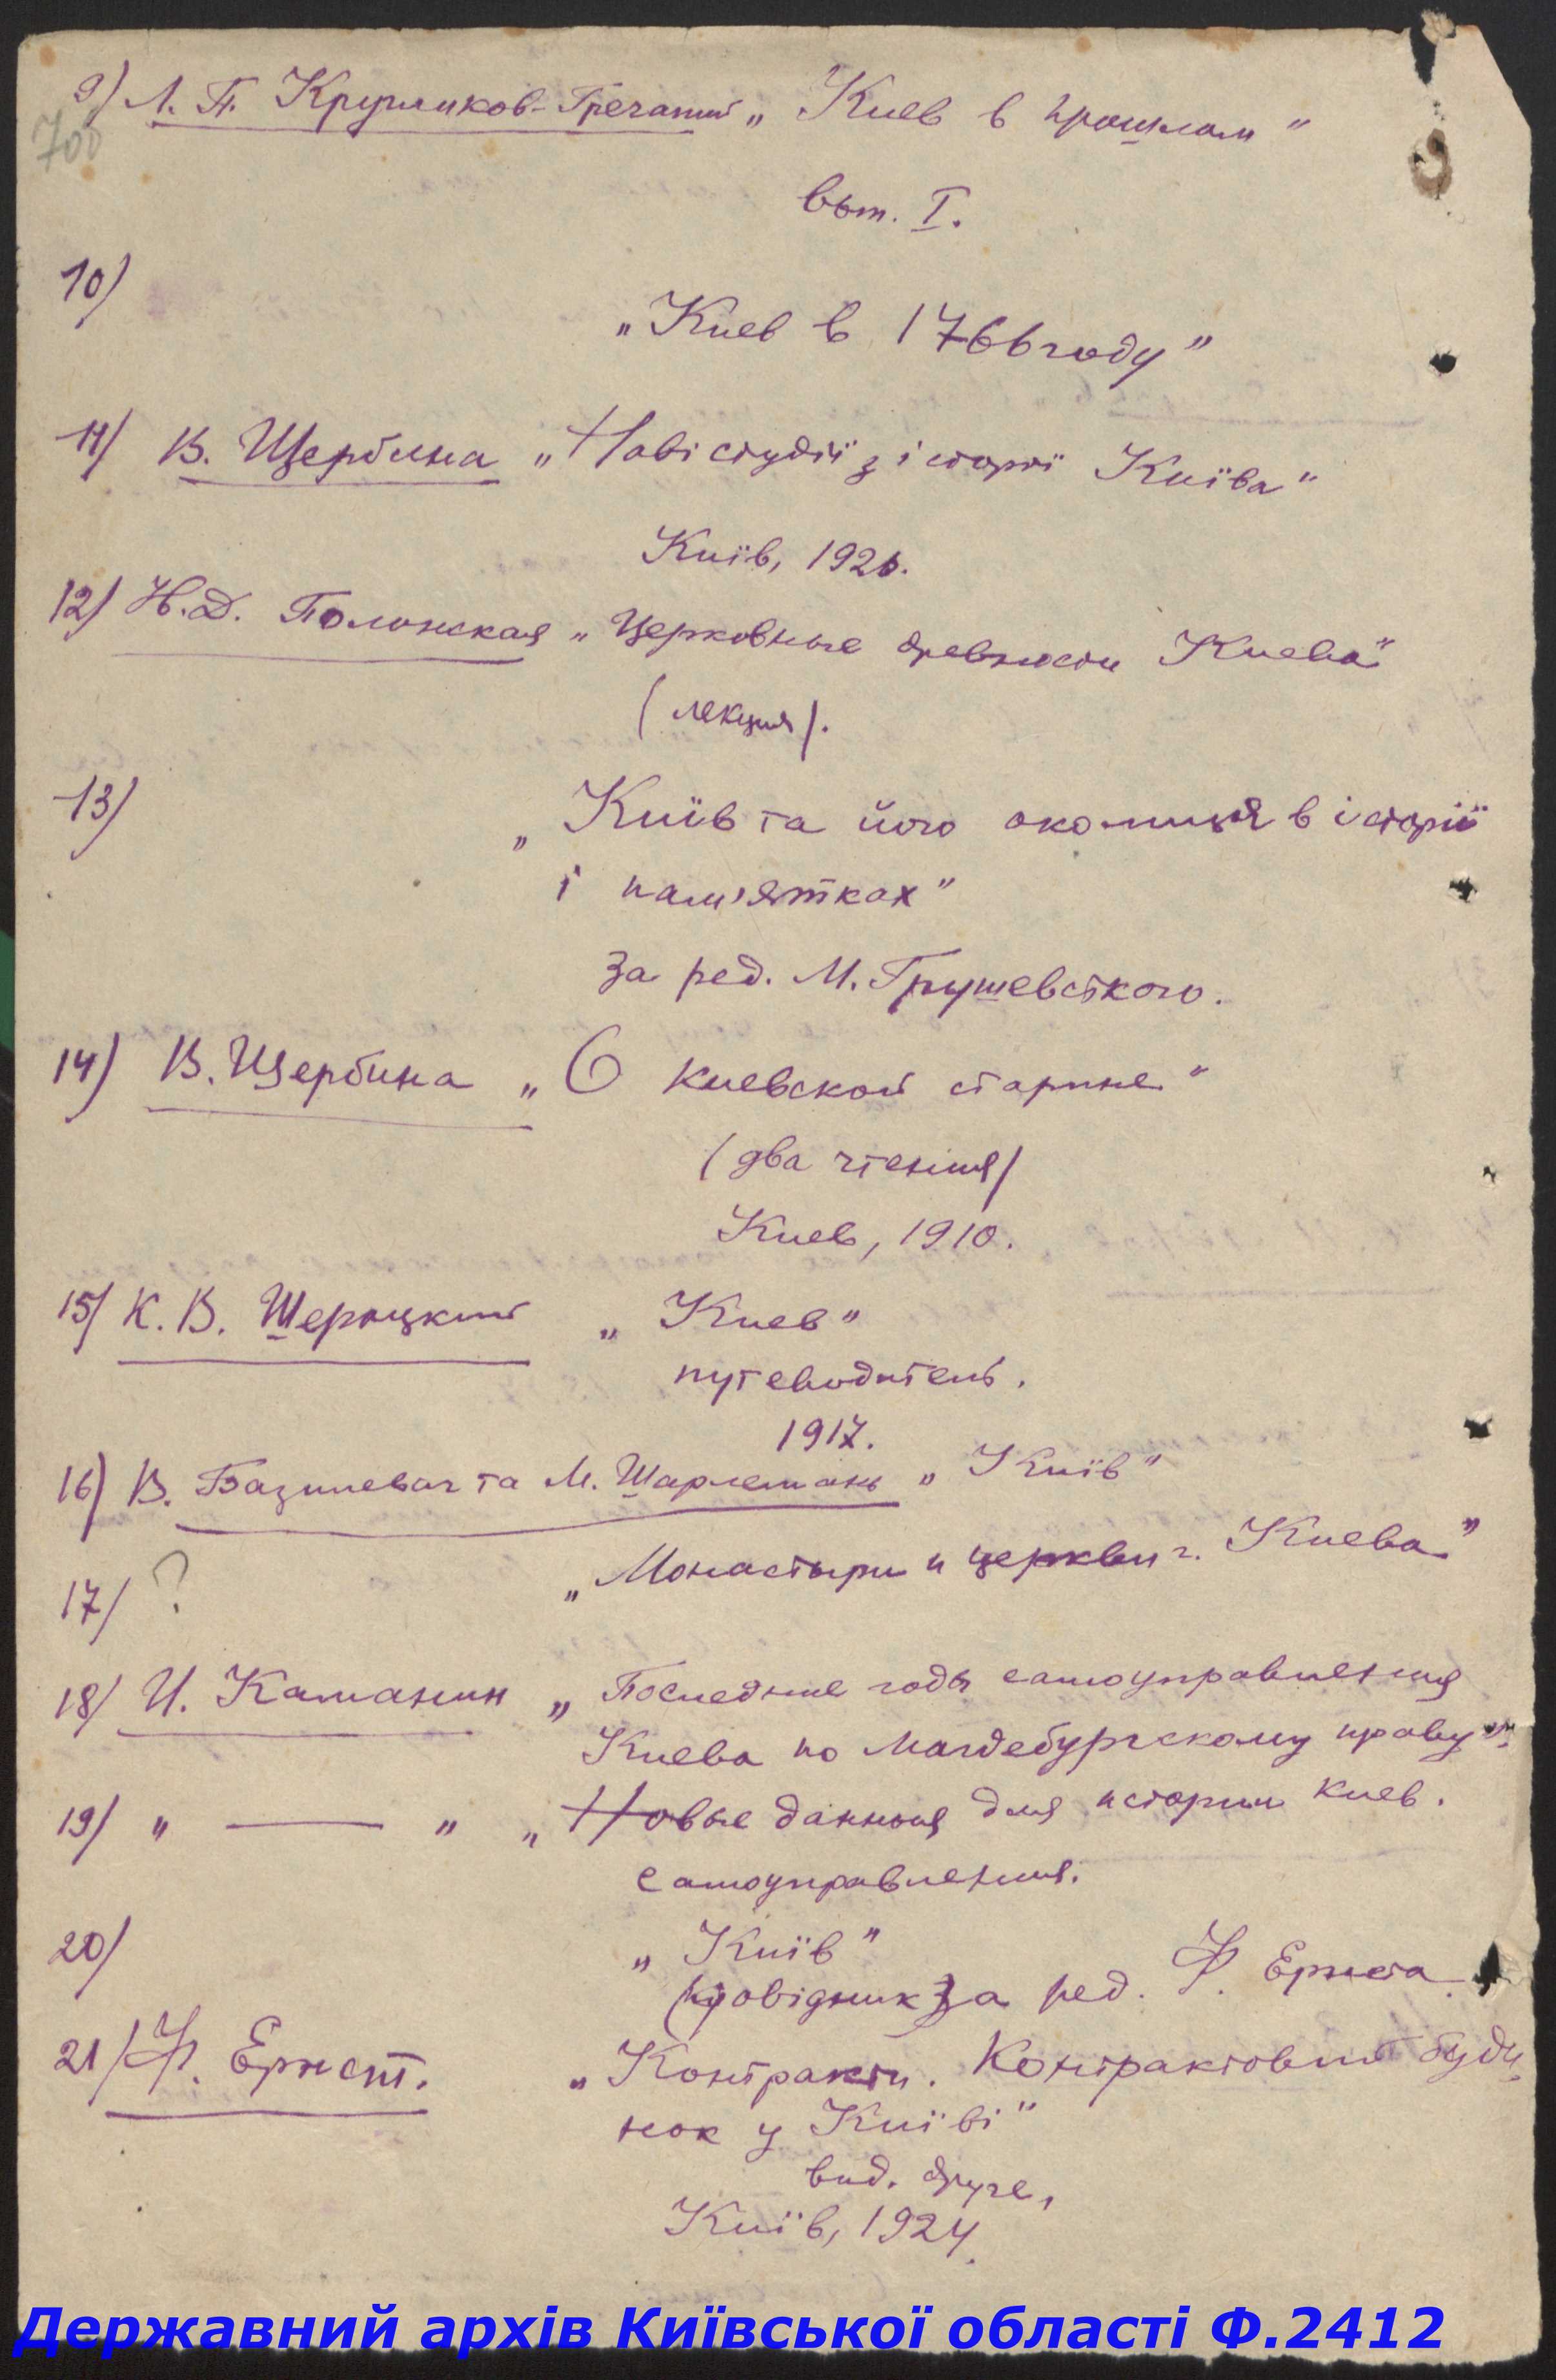 9) Л. П. Кругликов-Гречаный „Киев в прошлом"
700
вып. I.
10)
„Киев в 1766 году"
11) В. Щербина „Нові студії з історії Київа"
Київ, 1926.
12) Н.Д. Полонская „Церковные древности Киева"
(лекция).
13)
„Київ та його околиця в історії
і пам'ятках"
за ред. М. Грушевського.
14) В. Щербина „О киевской старине"
(два чтения)
Киев, 1910.
15) К. В. Шероцкий „Киев"
путеводитель.
1917.
16) В. Базилевич та М. Шарлемань „Київ"
17) ? „Монастыри и церкви г. Киева"
18) И. Каманин „Последние годы самоуправления
Киева по Магдебургскому праву".
19) " — " „Новые данныя для истории киев.
самоуправления.
20)
„Київ"
провідник за ред. Ф. Ернста.
21) Ф. Ернст. „Контракти. Контрактовий буди
нок у Київі"
вид. друге,
Київ, 1924.
Державний архів Київської області Ф.2412